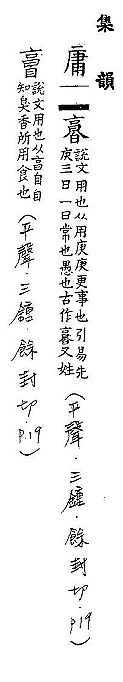 集韻
庸
說文用也从用庚庚更事也引易先
庚三日一曰常也愚也古作又姓
(平聲·三鍾·餘封切·P.19)
說文用也从亯自自
知臭香所用食也
(平聲·三鍾·餘封切·P.19)